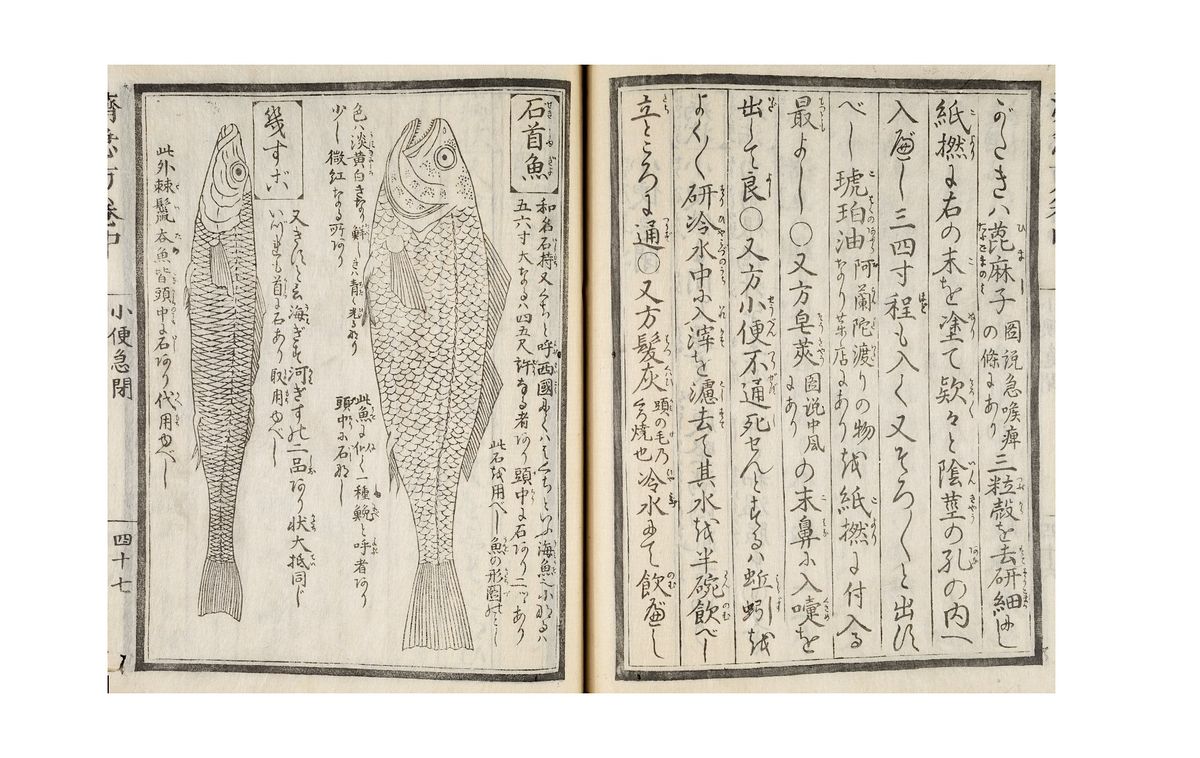 がたきハ蓖麻子 圖説急喉痺の條にあり 三粒殻を去研細にし
紙撚に右の末を塗て欵々と陰茎の孔の内へ
入べし三四寸程も入べく又そろ〳〵と出すべし
琥珀油 阿蘭陀渡りの物なり薬店にあり を紙撚に付入る
最よし〇又方皂莢 圖説中風にあり の末鼻に入嚏を
出して良〇又方小便不通死せんとするハ蚯蚓を
よく〳〵研冷水中に入滓を濾去て其水を半碗飲べし
立ところに通〇又方髪灰 頭の毛乃黒焼也 冷水にて飲べし
石首魚
和名石持又ぐちと呼西國にてハ
五六寸大なるハ四五尺許なる者あり頭中に石あり二ツあり
此石を用べし魚の形圖のごとし
色ハ淡黄白
少し微紅なる所あり
此魚に似て一種鮸と呼者あり
頭中に石なし
幾すご
又きすと云海ぎす河ぎすの二品あり状大抵同じ
いづれも首に石あり取用ゆべし
此外棘鬣 杏魚皆頭中に石あり代用ゆべし
小便急閉
四十七